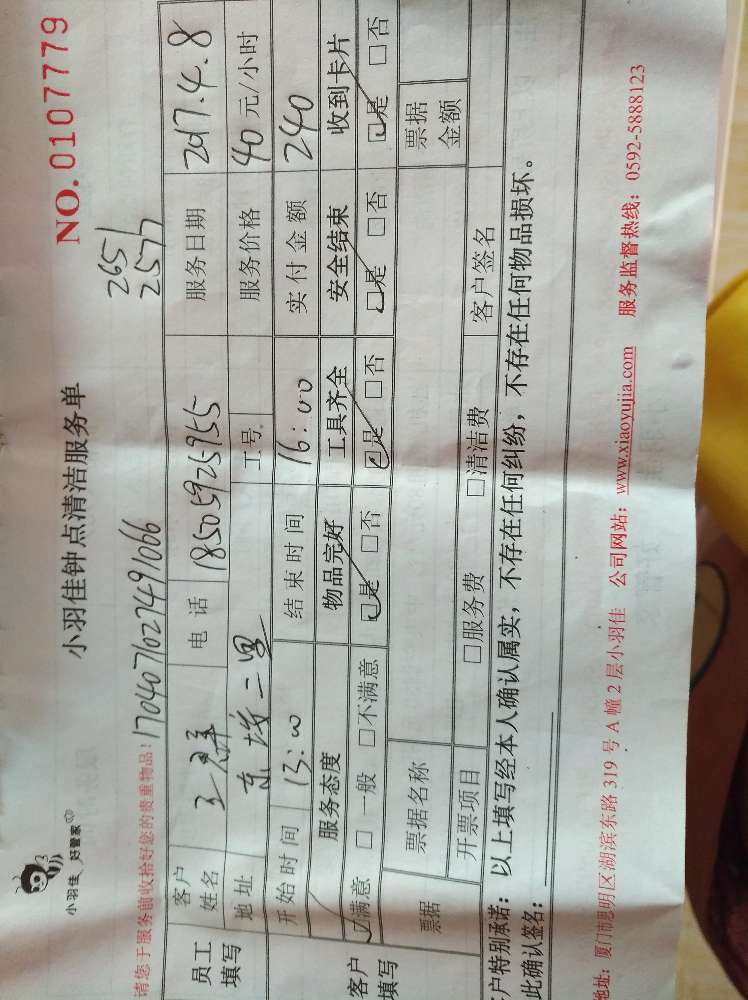 小羽佳 好管家
小羽佳钟点清洁服务单
NO.0107779
请您于服务前收拾好您的贵重物品!
265
2577
员工填写
客户姓名
电话 18505925955
服务日期 2017.4.8
地址 东坟二里
工号
服务价格 40元/小时
开始时间 13:00
结束时间 16:00
实付金额 240
客户填写
服务态度 物品完好 工具齐全 安全结束 收到卡片
☑满意 □一般 □不满意 ☑是 □否 ☑是 □否 ☑是 □否 ☑是 □否
票据
票据名称
票据金额
开票项目 □服务费 □清洁费
客户签名
客户特别承诺:以上填写经本人确认属实,不存在任何纠纷,不存在任何物品损坏。
此确认签名:
地址:厦门市思明区湖滨东路319号A幢2层小羽佳 公司网站:www.xiaoyujia.com 服务监督热线:0592-5888123